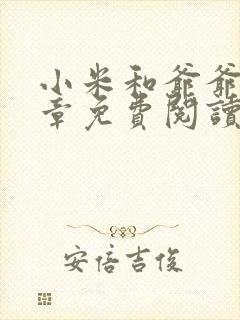 小米和爺爺
章免費閱讀
安倍吉俊